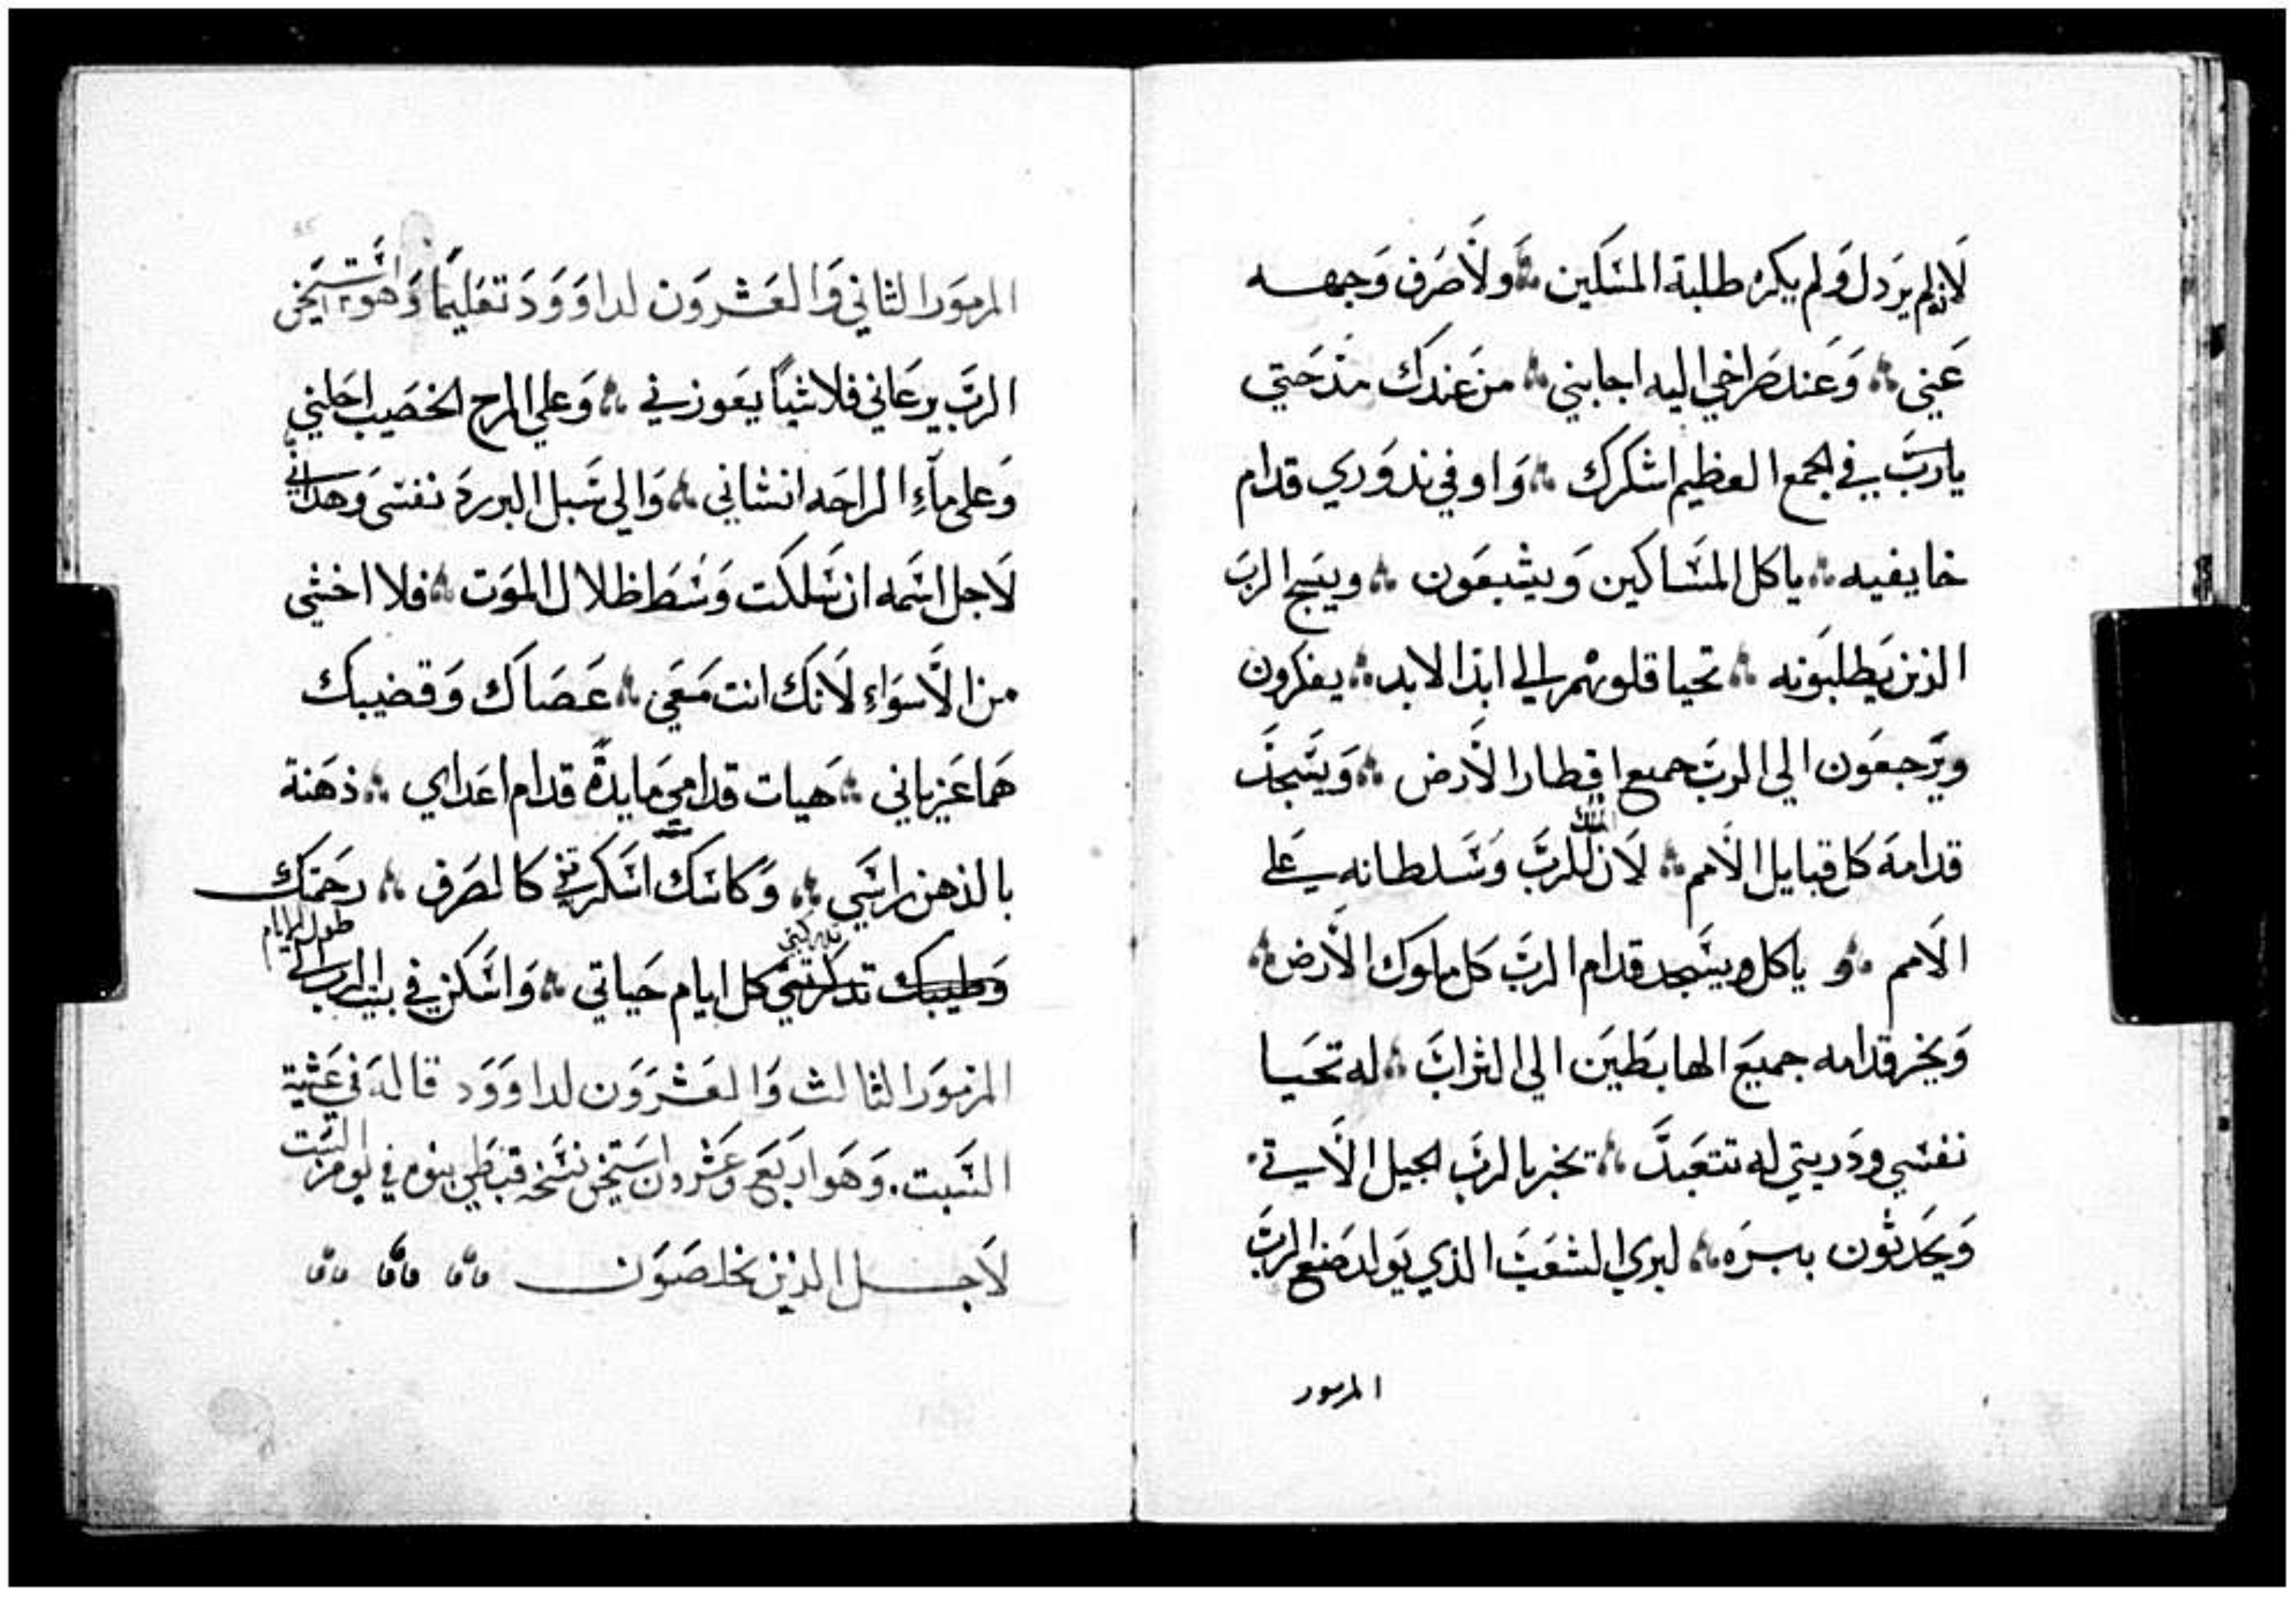 لانه لم يردل ولم يكره طلبة المسكين ولا صرف وجهه
عني وعند صراخي اليه اجابني من عندك مدحتي
يارب في الجمع العظيم اشكرك واوفي ندوري قدام
خايفيه ياكل المساكين ويشبعون ويسبح الرب
الذين يطلبونه تحيا قلوبهم الي ابد الابد يفكرون
ويرجعون الي الرب جميع اقطار الارض ويسجد
قدامه كل قبايل الامم لان للرب الملك وسلطانه علي
الامم و ياكل ويسجد قدام الرب كل ملوك الارض
ويخر قدامه جميع الهابطين الي التراب له تحيا
نفسي ودريتي له تتعبد تخبر بالرب الجيل الاتي
ويحدثون ببره لبري الشعب الذي يولد صنع الرب
المزمور
المزمور الثاني والعشرون لداوود تعليما وهو استيخن
الرب يرعاني فلا شيا يعوزني وعلي المرج الخصيب احلني
وعلي ماء الراحه انشاني والي سبل البر رد نفسي وهداني
لاجل اسمه ان سلكت وسط ظلال الموت فلا اخشي
من الاسواء لانك انت معي عصاك وقضيبك
هما عزياني هيات قدامي مايدة قدام اعداي دهنة
بالدهن راسي وكاسك اسكرتني كالصرف رحمتك
وطيبك تدركني كل ايام حياتي واسكن في بيت الرب الي طول الايام
المزمور الثالث والعشرون لداوود قاله في عشية
السبت. وهو اربع وعشرون استيخن نسخه قبطي في يوم من السبت
لاجل الذين يخلصون